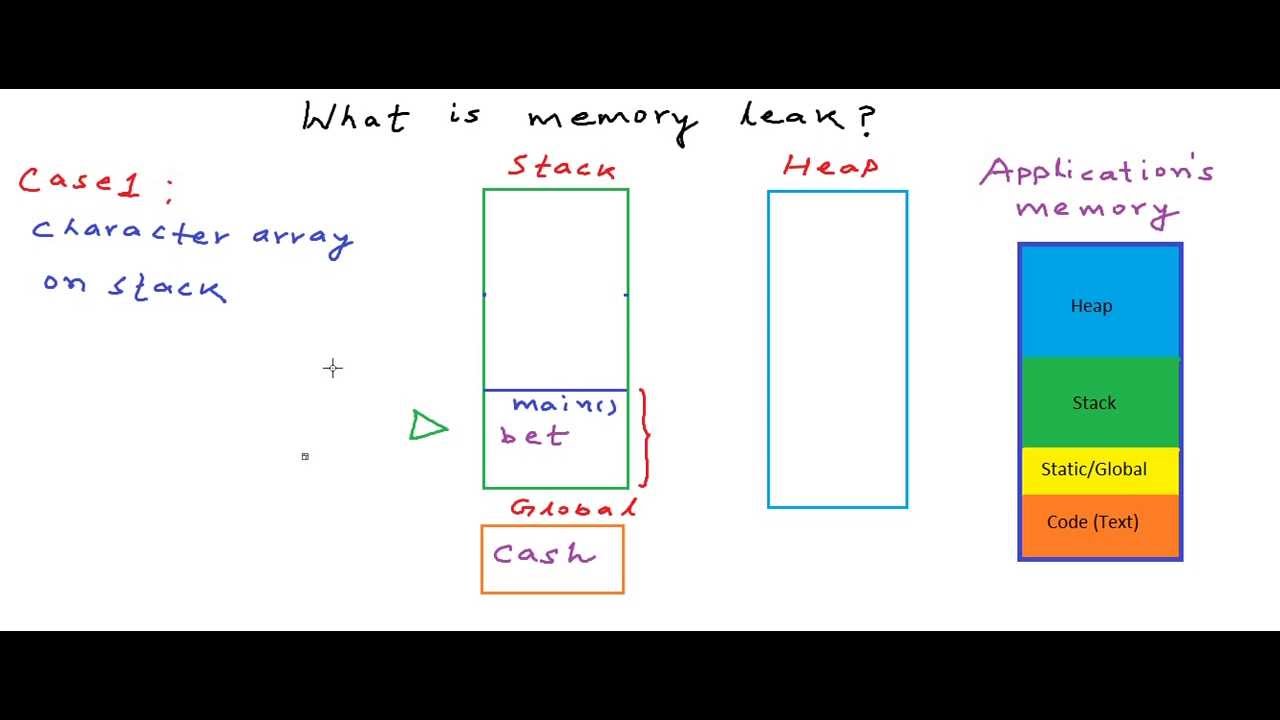 What is memory leak?
Case1:
Character array
on stack
Stack
main()
bet
Global
Cash
Heap
Application's
memory
Heap
Stack
Static/Global
Code (Text)